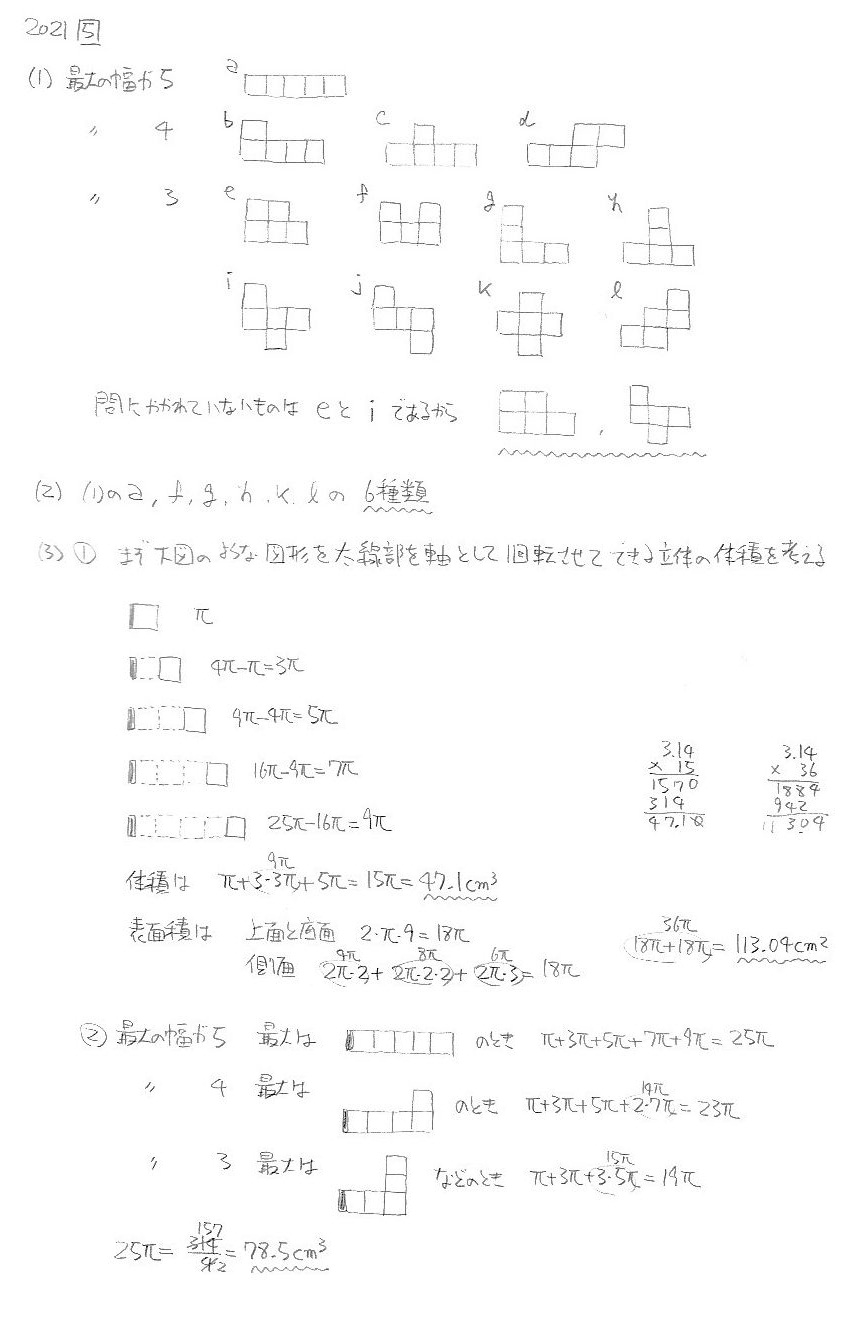 2021 5
(1) 最大の幅が5 a
〃 4 b c d
〃 3 e f g h
i j k l
問にかかれていないものは eと i であるから ,
(2) (1)のa, f, g, h, k, l の 6種類
(3) ① まず下図のような図形を太線部を軸として1回転させてできる立体の体積を考える
π
4π-π=3π
9π-4π=5π
16π-9π=7π
25π-16π=9π
3.14
× 15
1570
314
47.10
3.14
× 36
1884
942
11304
9π
体積は π+3・3π+5π=15π=47.1cm³
表面積は 上面と底面 2・π・9=18π
4π 8π 6π
側面 2π・2+2π・2・2+2π・3=18π
36π
18π+18π=113.04cm²
② 最大の幅が5 最大は のとき π+3π+5π+7π+9π=25π
14π
〃 4 最大は のとき π+3π+5π+2・7π=23π
15π
〃 3 最大は などのとき π+3π+3・5π=19π
157
25π= 314 = 78.5cm³
2